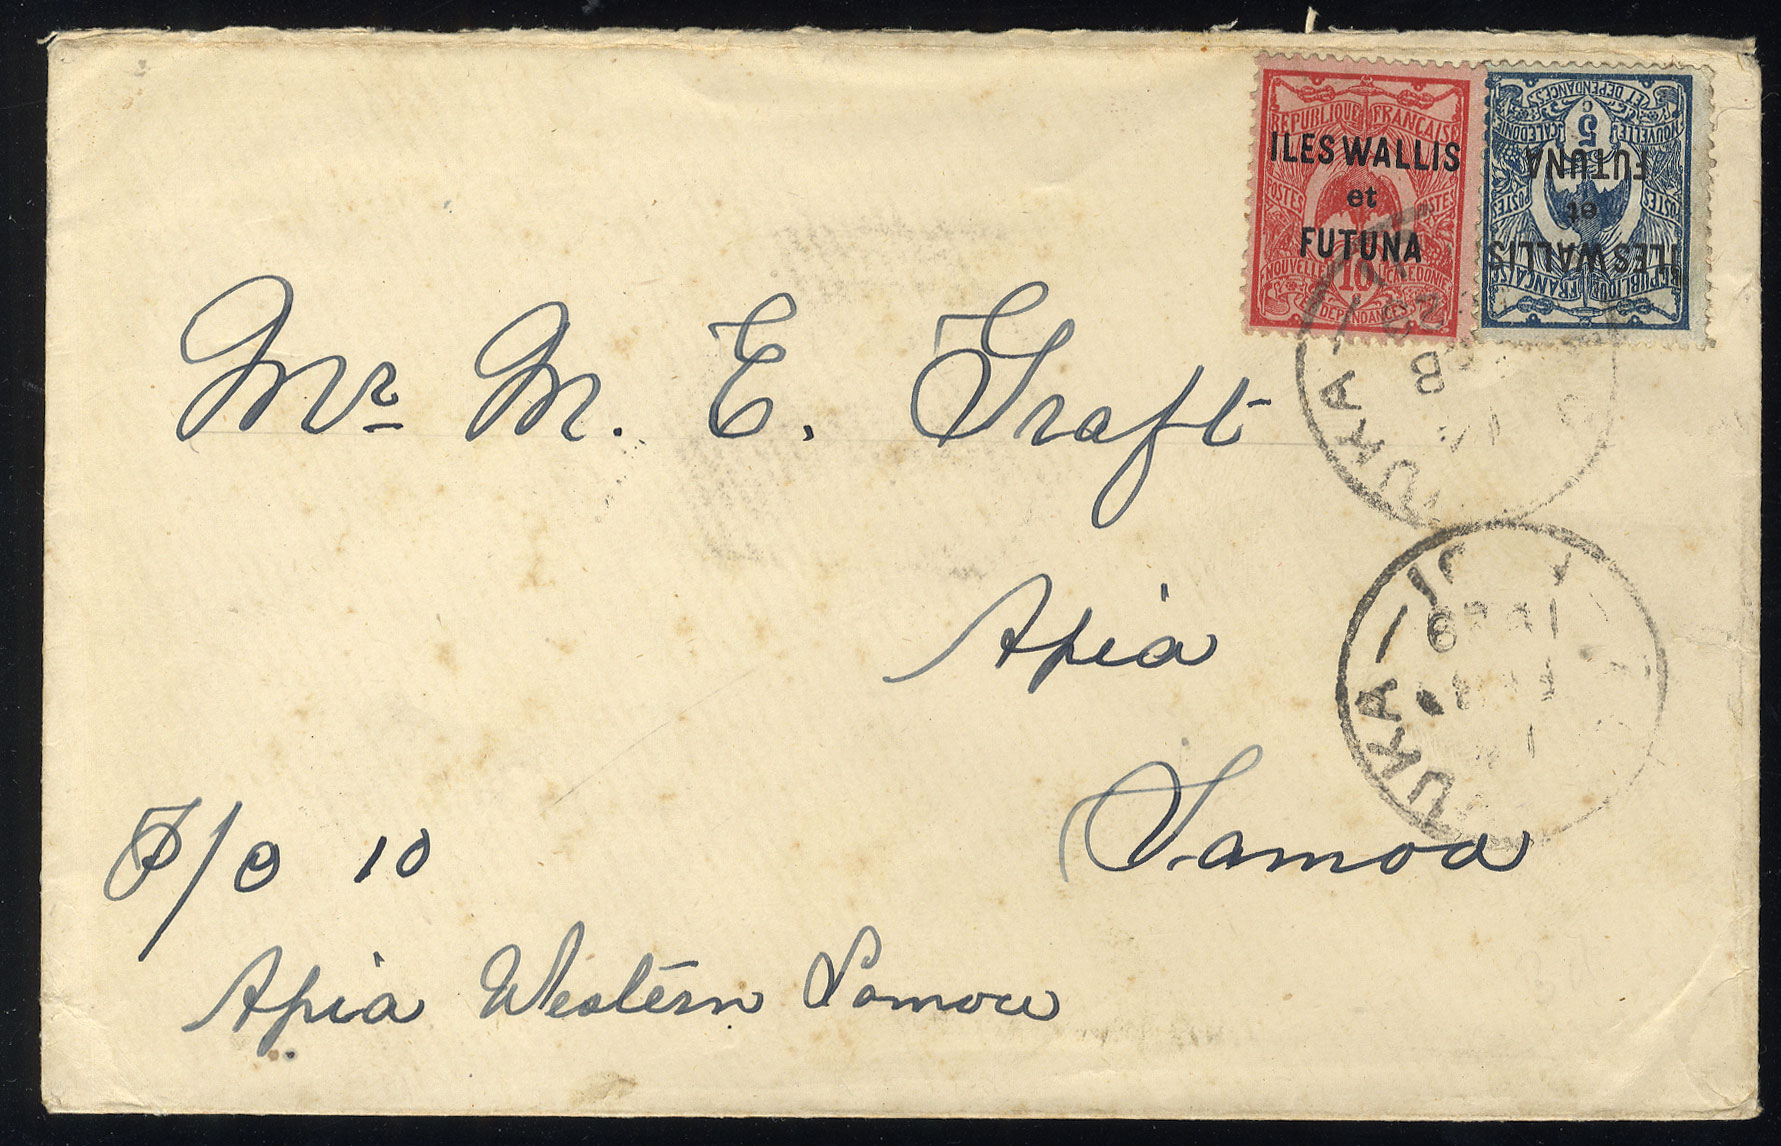 REPUBLIQUE FRANCAISE
ILES WALLIS
et
FUTUNA
POSTES POSTES
10
NOUVELLE CALEDONIE
ET DEPENDANCES
REPUBLIQUE FRANCAISE
ILES WALLIS
et
FUTUNA
POSTES POSTES
5 c
NOUVELLE CALEDONIE
ET DEPENDANCES
Mr M. E. Graft
Apia
Samoa
P/O 10
Apia Western Samoa
UKA
UKA